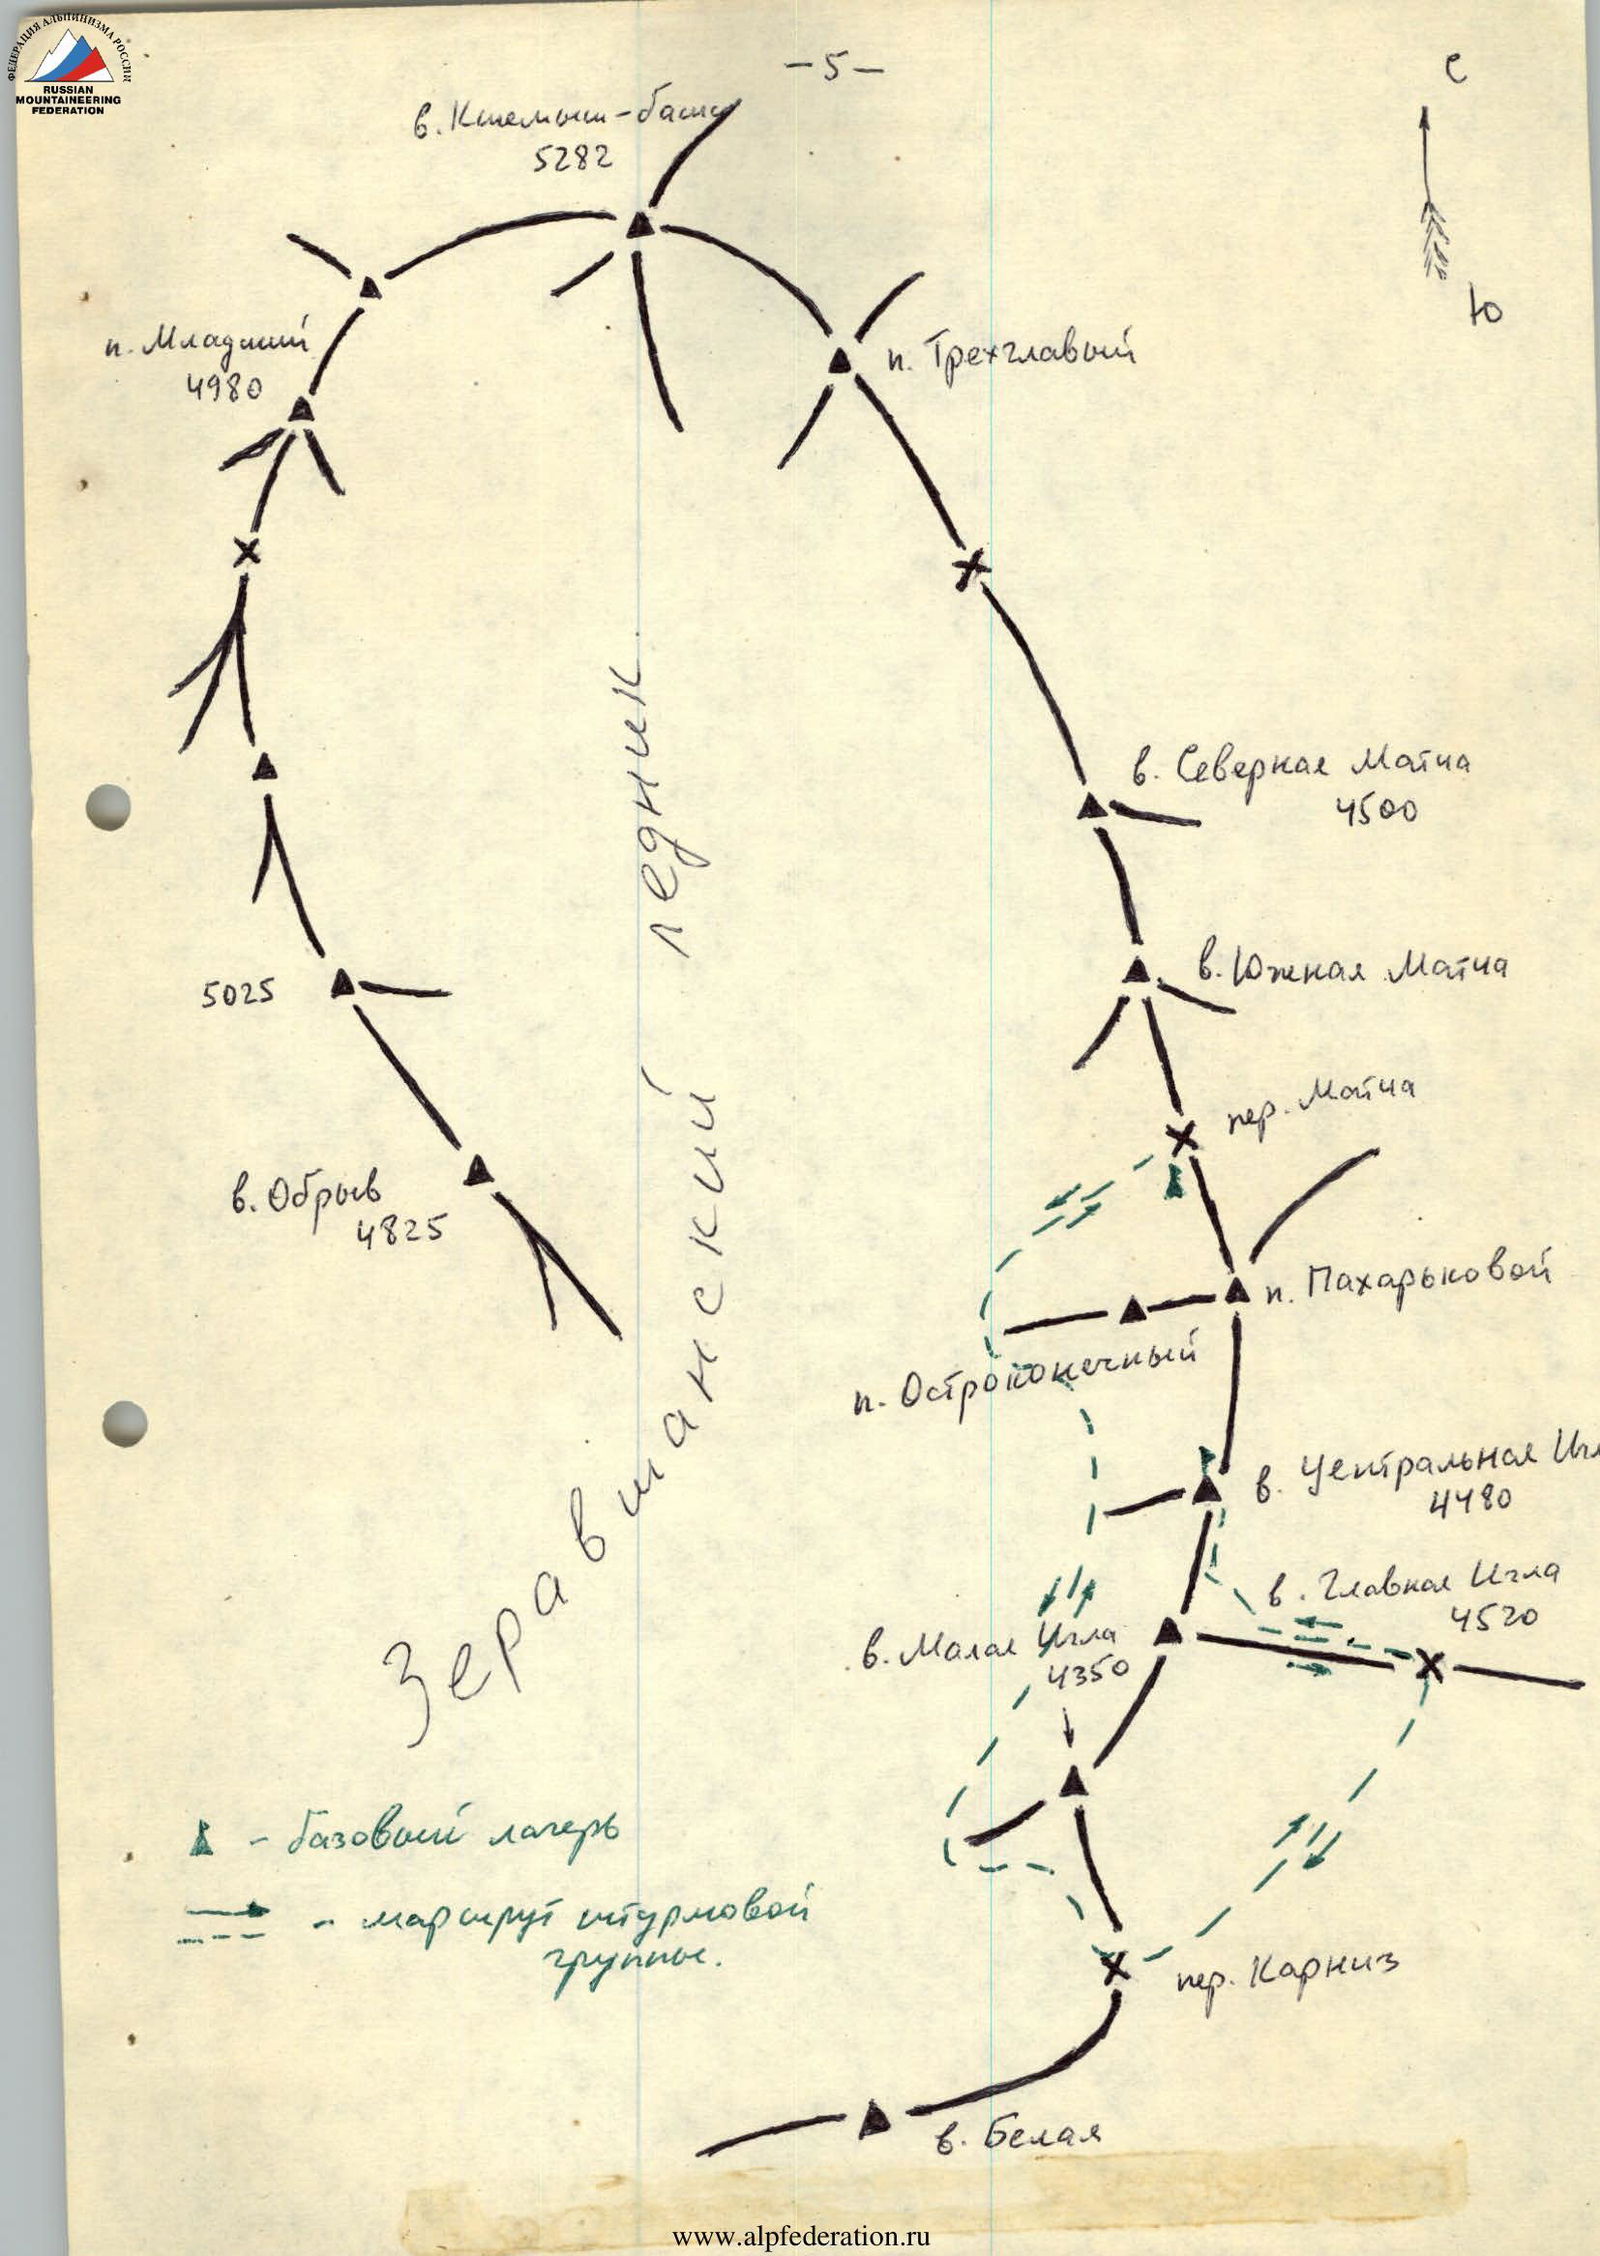 ФЕДЕРАЦИЯ АЛЬПИНИЗМА РОССИИ
RUSSIAN
MOUNTAINEERING
FEDERATION
-5-
С
Ю
в. Кшемыш-баши
5282
п. Младший
4980
п. Трехглавый
в. Северная Матча
4500
в. Южная Матча
5025
пер. Матча
в. Обрыв
4825
п. Пахарьковой
п. Остроконечный
в. Центральная Игл
4480
в. Главная Игла
4520
в. Малая Игла
4350
Зеравшанский ледник
- базовый лагерь
- маршрут штурмовой
группы.
пер. Карниз
в. Белая
www.alpfederation.ru